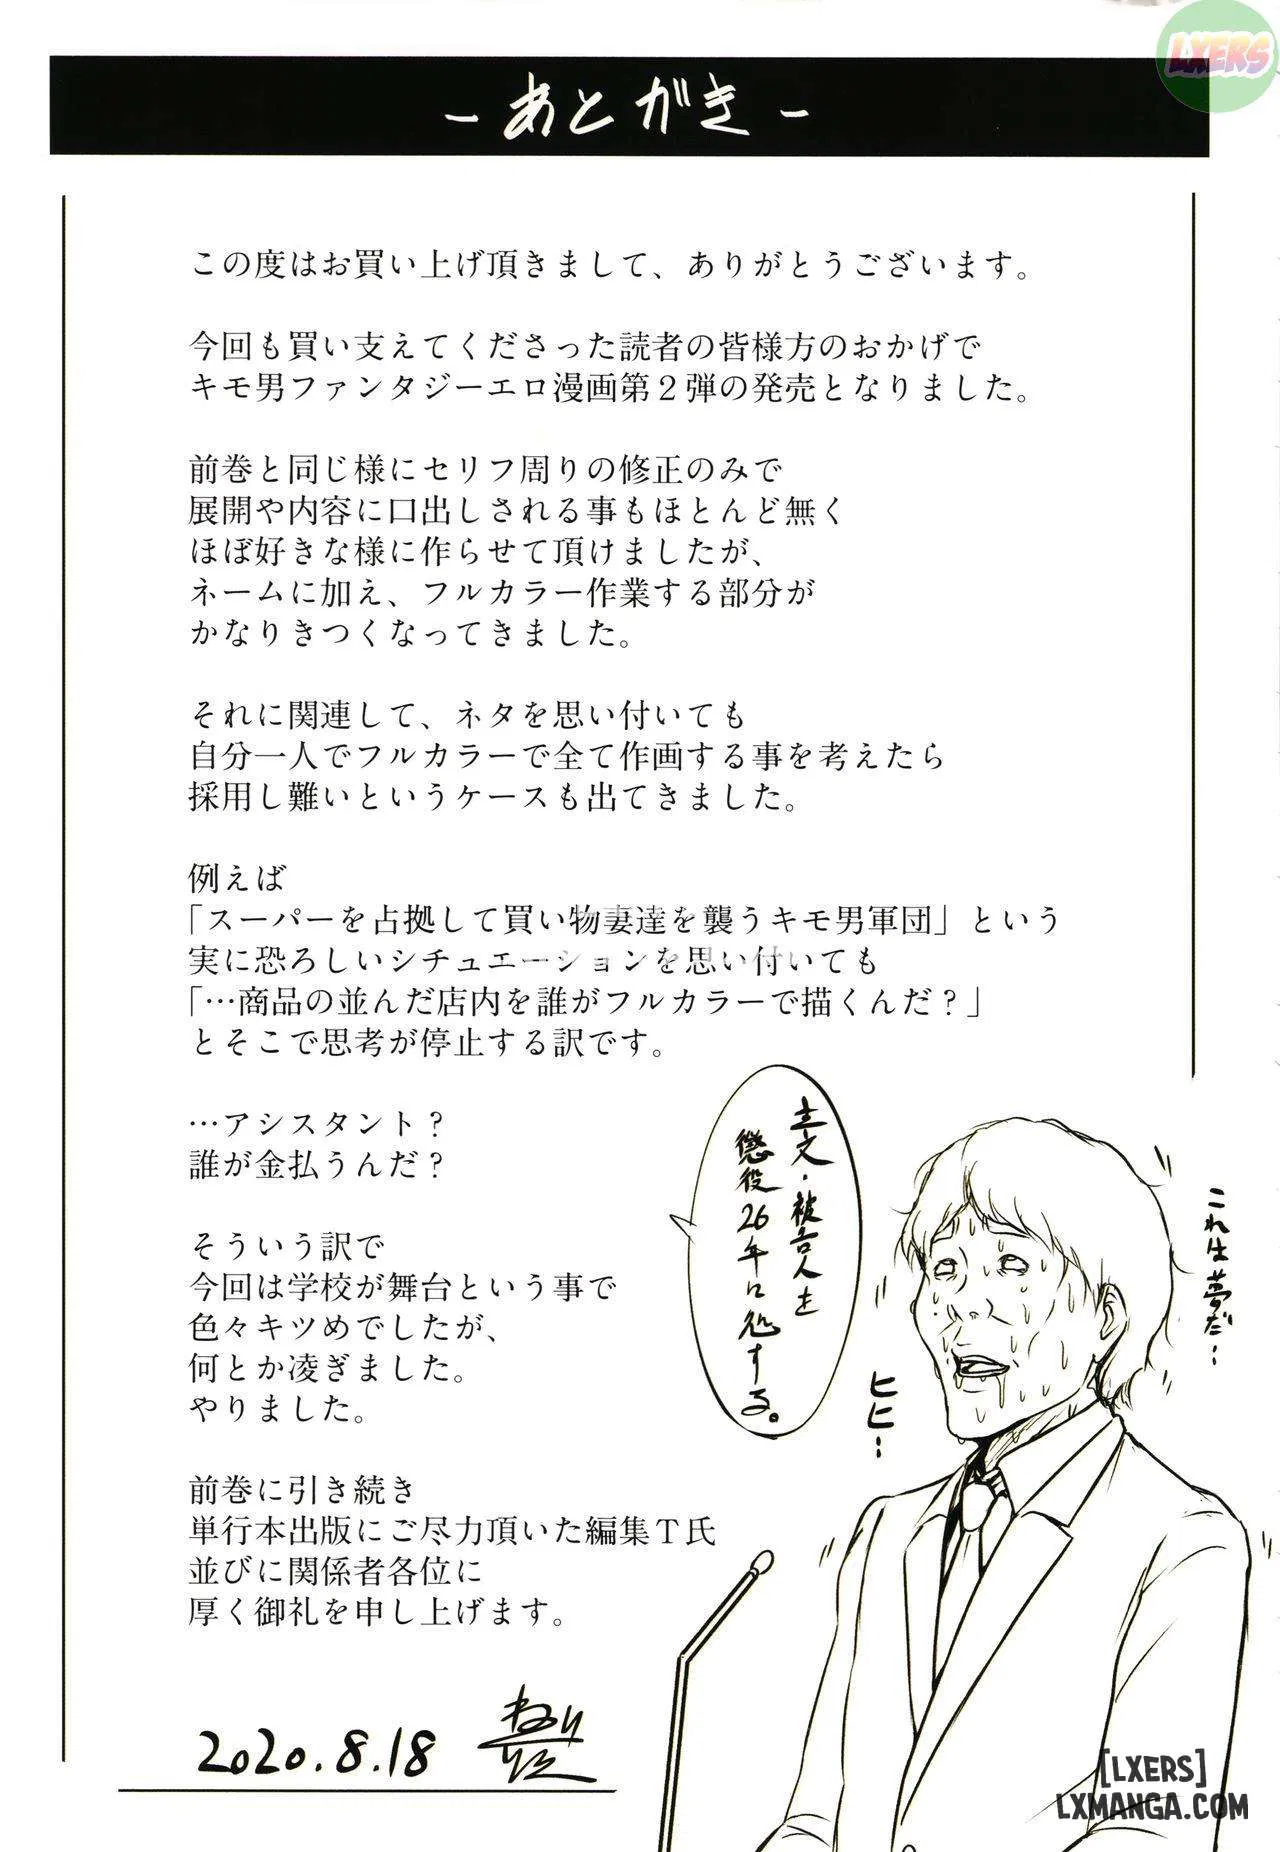 LXERS
- あとがき -
この度はお買い上げ頂きまして、ありがとうございます。
今回も買い支えてくださった読者の皆様方のおかげで
キモ男ファンタジーエロ漫画第２弾の発売となりました。
前巻と同じ様にセリフ周りの修正のみで
展開や内容に口出しされる事もほとんど無く
ほぼ好きな様に作らせて頂けましたが、
ネームに加え、フルカラー作業する部分が
かなりきつくなってきました。
それに関連して、ネタを思い付いても
自分一人でフルカラーで全て作画する事を考えたら
採用し難いというケースも出てきました。
例えば
「スーパーを占拠して買い物妻達を襲うキモ男軍団」という
実に恐ろしいシチュエーションを思い付いても
「…商品の並んだ店内を誰がフルカラーで描くんだ？」
とそこで思考が停止する訳です。
…アシスタント？
誰が金払うんだ？
そういう訳で
今回は学校が舞台という事で
色々キツめでしたが、
何とか凌ぎました。
やりました。
前巻に引き続き
単行本出版にご尽力頂いた編集Ｔ氏
並びに関係者各位に
厚く御礼を申し上げます。
主文・被告人を
懲役26年に処する。
これは夢だ…
ヒヒ…
2020.8.18
[LXERS]
LXMANGA.COM